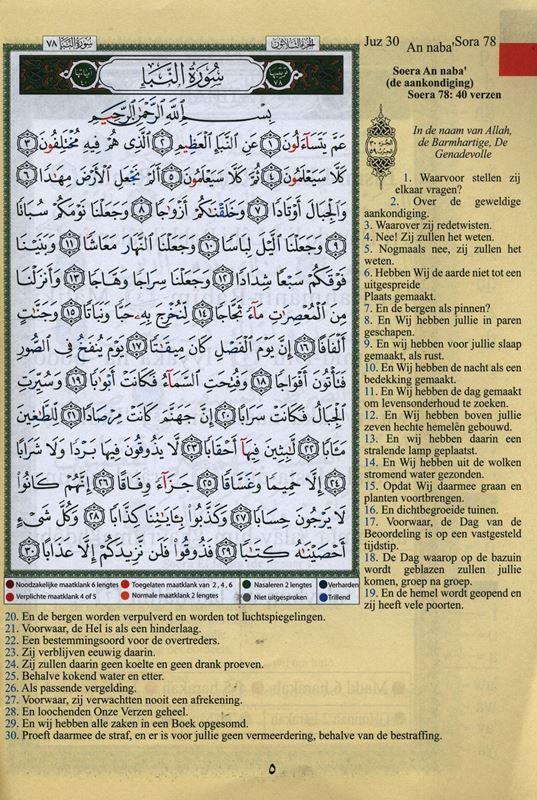 Juz 30 An naba' Sora 78
سورة النبإ ٧٨
الجزء الثلاثون
سُورَةُ النَّبَإِ
بِسْمِ اللَّهِ الرَّحْمَٰنِ الرَّحِيمِ
عَمَّ يَتَسَاءَلُونَ ١ عَنِ النَّبَإِ الْعَظِيمِ ٢ الَّذِي هُمْ فِيهِ مُخْتَلِفُونَ ٣
كَلَّا سَيَعْلَمُونَ ٤ ثُمَّ كَلَّا سَيَعْلَمُونَ ٥ أَلَمْ نَجْعَلِ الْأَرْضَ مِهَادًا ٦
وَالْجِبَالَ أَوْتَادًا ٧ وَخَلَقْنَاكُمْ أَزْوَاجًا ٨ وَجَعَلْنَا نَوْمَكُمْ سُبَاتًا
٩ وَجَعَلْنَا اللَّيْلَ لِبَاسًا ١٠ وَجَعَلْنَا النَّهَارَ مَعَاشًا ١١ وَبَنَيْنَا
فَوْقَكُمْ سَبْعًا شِدَادًا ١٢ وَجَعَلْنَا سِرَاجًا وَهَّاجًا ١٣ وَأَنْزَلْنَا
مِنَ الْمُعْصِرَاتِ مَاءً ثَجَّاجًا ١٤ لِنُخْرِجَ بِهِ حَبًّا وَنَبَاتًا ١٥ وَجَنَّاتٍ
أَلْفَافًا ١٦ إِنَّ يَوْمَ الْفَصْلِ كَانَ مِيقَاتًا ١٧ يَوْمَ يُنْفَخُ فِي الصُّورِ
فَتَأْتُونَ أَفْوَاجًا ١٨ وَفُتِحَتِ السَّمَاءُ فَكَانَتْ أَبْوَابًا ١٩ وَسُيِّرَتِ
الْجِبَالُ فَكَانَتْ سَرَابًا ٢٠ إِنَّ جَهَنَّمَ كَانَتْ مِرْصَادًا ٢١ لِلطَّاغِينَ
مَآبًا ٢٢ لَابِثِينَ فِيهَا أَحْقَابًا ٢٣ لَا يَذُوقُونَ فِيهَا بَرْدًا وَلَا شَرَابًا
٢٤ إِلَّا حَمِيمًا وَغَسَّاقًا ٢٥ جَزَاءً وِفَاقًا ٢٦ إِنَّهُمْ كَانُوا
لَا يَرْجُونَ حِسَابًا ٢٧ وَكَذَّبُوا بِآيَاتِنَا كِذَّابًا ٢٨ وَكُلَّ شَيْءٍ
أَحْصَيْنَاهُ كِتَابًا ٢٩ فَذُوقُوا فَلَنْ نَزِيدَكُمْ إِلَّا عَذَابًا ٣٠
Noodzakelijke maatklank 6 lengtes
Toegelaten maatklank van 2, 4, 6
Nasaleren 2 lengtes
Verharden
Verplichte maatklank 4 of 5
Normale maatklank 2 lengtes
Niet uitgesproken
Trillend
Soera An naba'
(de aankondiging)
Soera 78: 40 verzen
In de naam van Allah,
de Barmhartige, De
Genadevolle
1. Waarvoor stellen zij
elkaar vragen?
2. Over de geweldige
aankondiging.
3. Waarover zij redetwisten.
4. Nee! Zij zullen het weten.
5. Nogmaals nee, zij zullen het
weten.
6. Hebben Wij de aarde niet tot een
uitgespreide
Plaats gemaakt.
7. En de bergen als pinnen?
8. En Wij hebben jullie in paren
geschapen.
9. En wij hebben voor jullie slaap
gemaakt, als rust.
10. En Wij hebben de nacht als een
bedekking gemaakt.
11. En Wij hebben de dag gemaakt
om levensonderhoud te zoeken.
12. En Wij hebben boven jullie
zeven hechte hemelen gebouwd.
13. En wij hebben daarin een
stralende lamp geplaatst.
14. En Wij hebben uit de wolken
stromend water gezonden.
15. Opdat Wij daarmee graan en
planten voortbrengen.
16. En dichtbegroeide tuinen.
17. Voorwaar, de Dag van de
Beoordeling is op een vastgesteld
tijdstip.
18. De Dag waarop op de bazuin
wordt geblazen zullen jullie
komen, groep na groep.
19. En de hemel wordt geopend en
zij heeft vele poorten.
20. En de bergen worden verpulverd en worden tot luchtspiegelingen.
21. Voorwaar, de Hel is als een hinderlaag.
22. Een bestemmingsoord voor de overtreders.
23. Zij verblijven eeuwig daarin.
24. Zij zullen daarin geen koelte en geen drank proeven.
25. Behalve kokend water en etter.
26. Als passende vergelding.
27. Voorwaar, zij verwachtten nooit een afrekening.
28. En loochenden Onze Verzen geheel.
29. En wij hebben alle zaken in een Boek opgesomd.
30. Proeft daarmee de straf, en er is voor jullie geen vermeerdering, behalve van de bestraffing.
٥